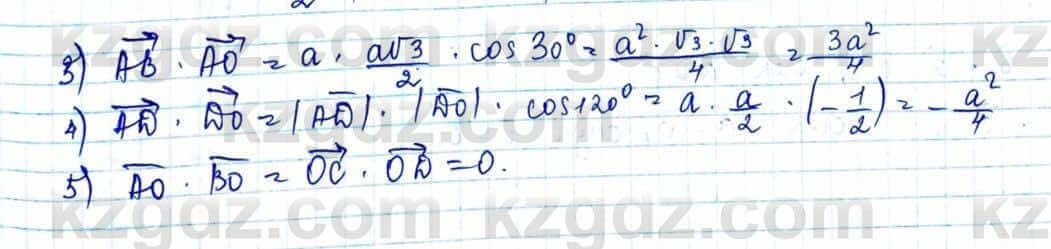 3) AB · AO = a · a√3/2 · cos 30° = a² · √3 · √3/4 = 3a²/4
4) AD · DO = |AD| · |DO| · cos 120° = a · a/2 · (-1/2) = -a²/4
5) AO · BO = OC · OD = 0.
kzgdz.com